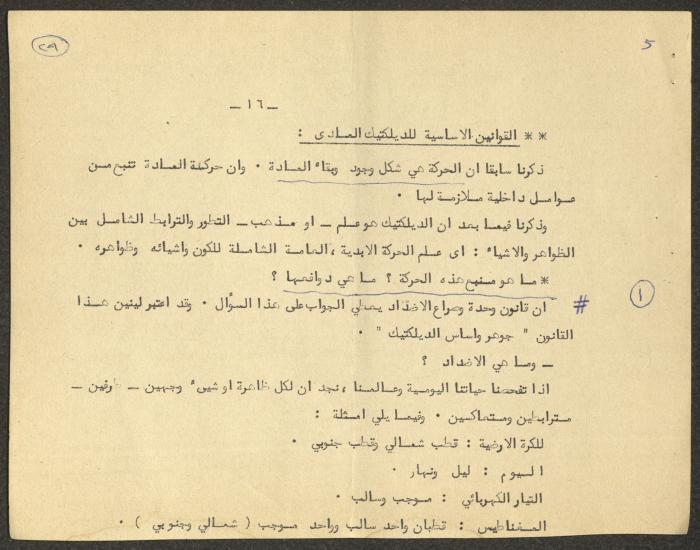 ٢٩
5
_ ١٦ _
** القوانين الاساسية للديلكتيك المادى :
ذكرنا سابقا ان الحركة هي شكل وجود وبقاء المادة . وان حركة المادة تنبع من
عوامل داخلية ملازمة لها .
وذكرنا فيما بعد ان الديلكتيك هو علم _ او مذهب _ التطور والترابط الشامل بين
الظواهر والاشياء : اى علم الحركة الابدية ، العامة الشاملة للكون واشيائه وظواهره .
* ما هو منبع هذه الحركة ؟ ما هي دوافعها ؟
١
# ان قانون وحدة وصراع الاضداد يعطي الجواب على هذا السؤال . وقد اعتبر لينين هذا
القانون " جوهر واساس الديلكتيك " .
_ وما هي الاضداد ؟
اذا تفحصنا حياتنا اليومية وعالمنا ، نجد ان لكل ظاهرة او شيىء وجهين _ طرفين _
مترابطين ومتعاكسين . وفيما يلي امثلة :
للكرة الارضية : قطب شمالي وقطب جنوبي .
اليوم : ليل ونهار .
التيار الكهربائي : موجب وسالب .
المغناطيس : قطبان واحد سالب وواحد موجب ( شمالي وجنوبي ) .